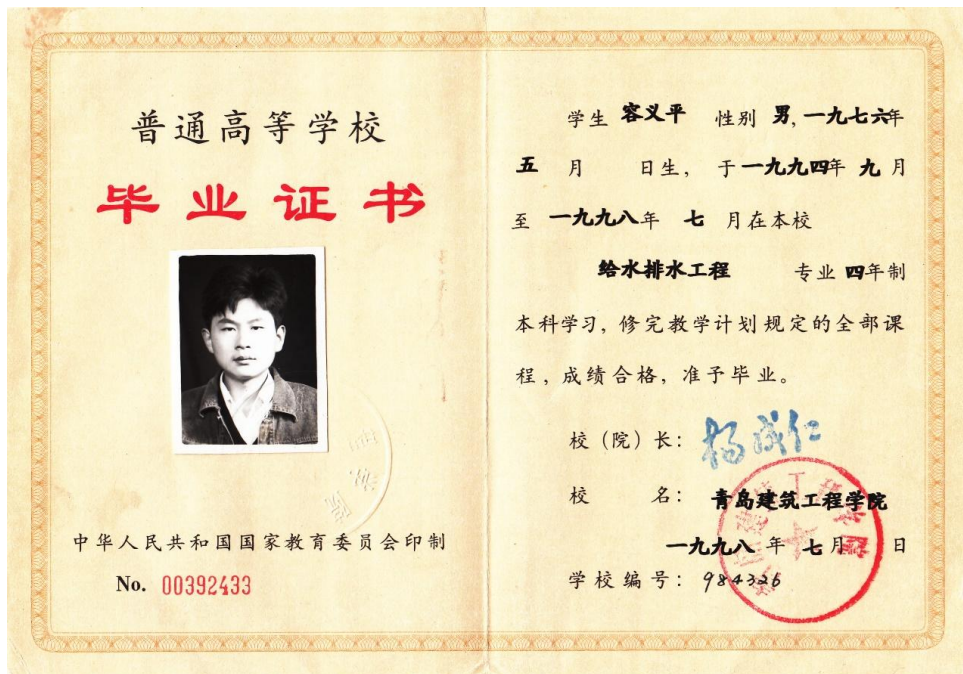 普通高等学校
毕业证书
中华人民共和国国家教育委员会印制
No. 00392433
学生 容义平 性别 男,一九七六年
五 月 日生, 于一九九四年 九 月
至 一九九八年 七 月在本校
给水排水工程 专业 四年制
本科学习, 修完教学计划规定的全部课
程, 成绩合格, 准予毕业。
校(院)长: 杨成仁
校 名: 青岛建筑工程学院
一九九八 年 七月 日
学校编号: 984326